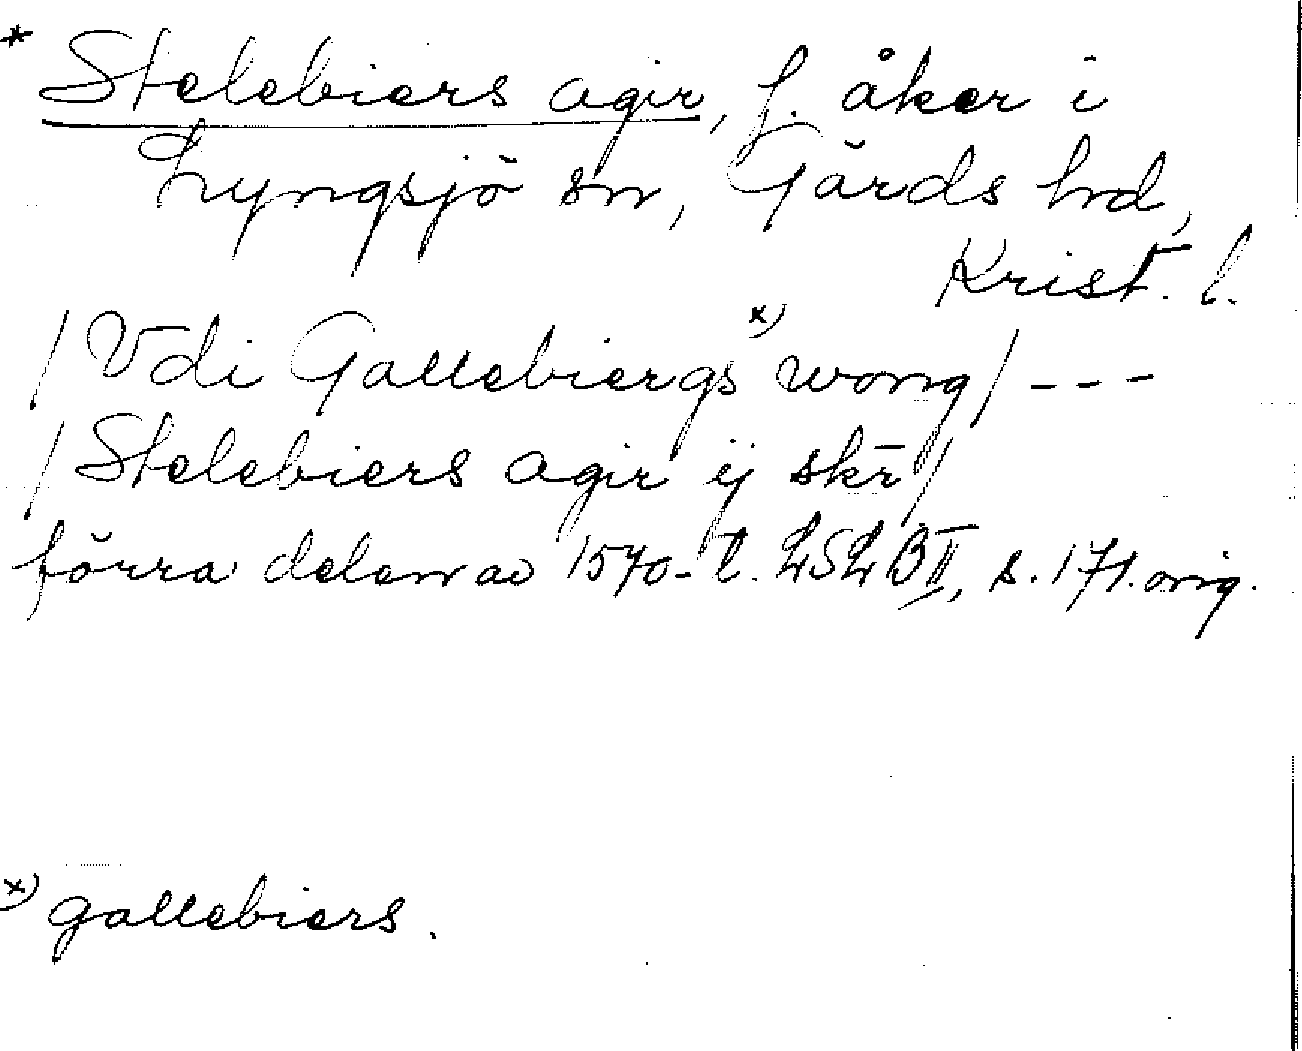 * Stelebiers agir, f. åker i
Lyngsjö sn, Gärds hd,
Krist. l.
/ Vdi Gallebiergs x) wong / ---
/ Stelebiers agir ij skr /
förra delen av 1570-t. LSLB II, s. 171. orig.
x) gallebiers.